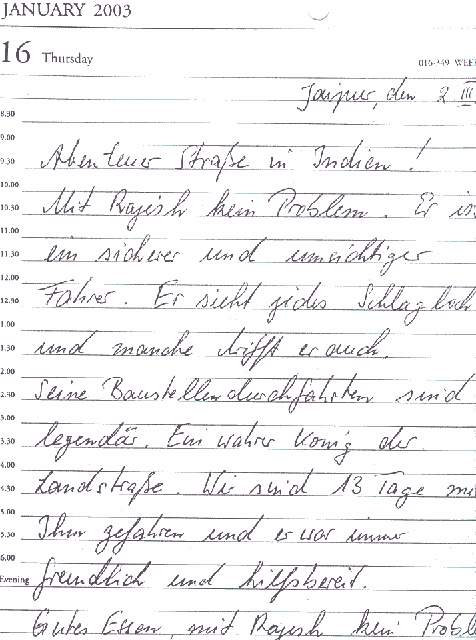 JANUARY 2003
16 Thursday
016-349 WEE
Jaipur, den 2 III
8.30
9.00
9.30 Abenteuer Straße in Indien!
10.00
10.30 Mit Rajish kein Problem. Er is
11.00
11.30 ein sicherer und umsichtiger
12.00
12.30 Fahrer. Er sieht jedes Schlagloch
1.00
1.30 und manche trifft er auch.
2.00
2.30 Seine Baustellendurchfahrten sind
3.00
3.30 legendär. Ein wahrer König der
4.00
4.30 Landstraße. Wir sind 13 Tage mi
5.00
5.30 Ihm gefahren und er war immer
6.00
Evening freundlich und hilfsbereit.
Gutes Essen, mit Rajesh kein Probl